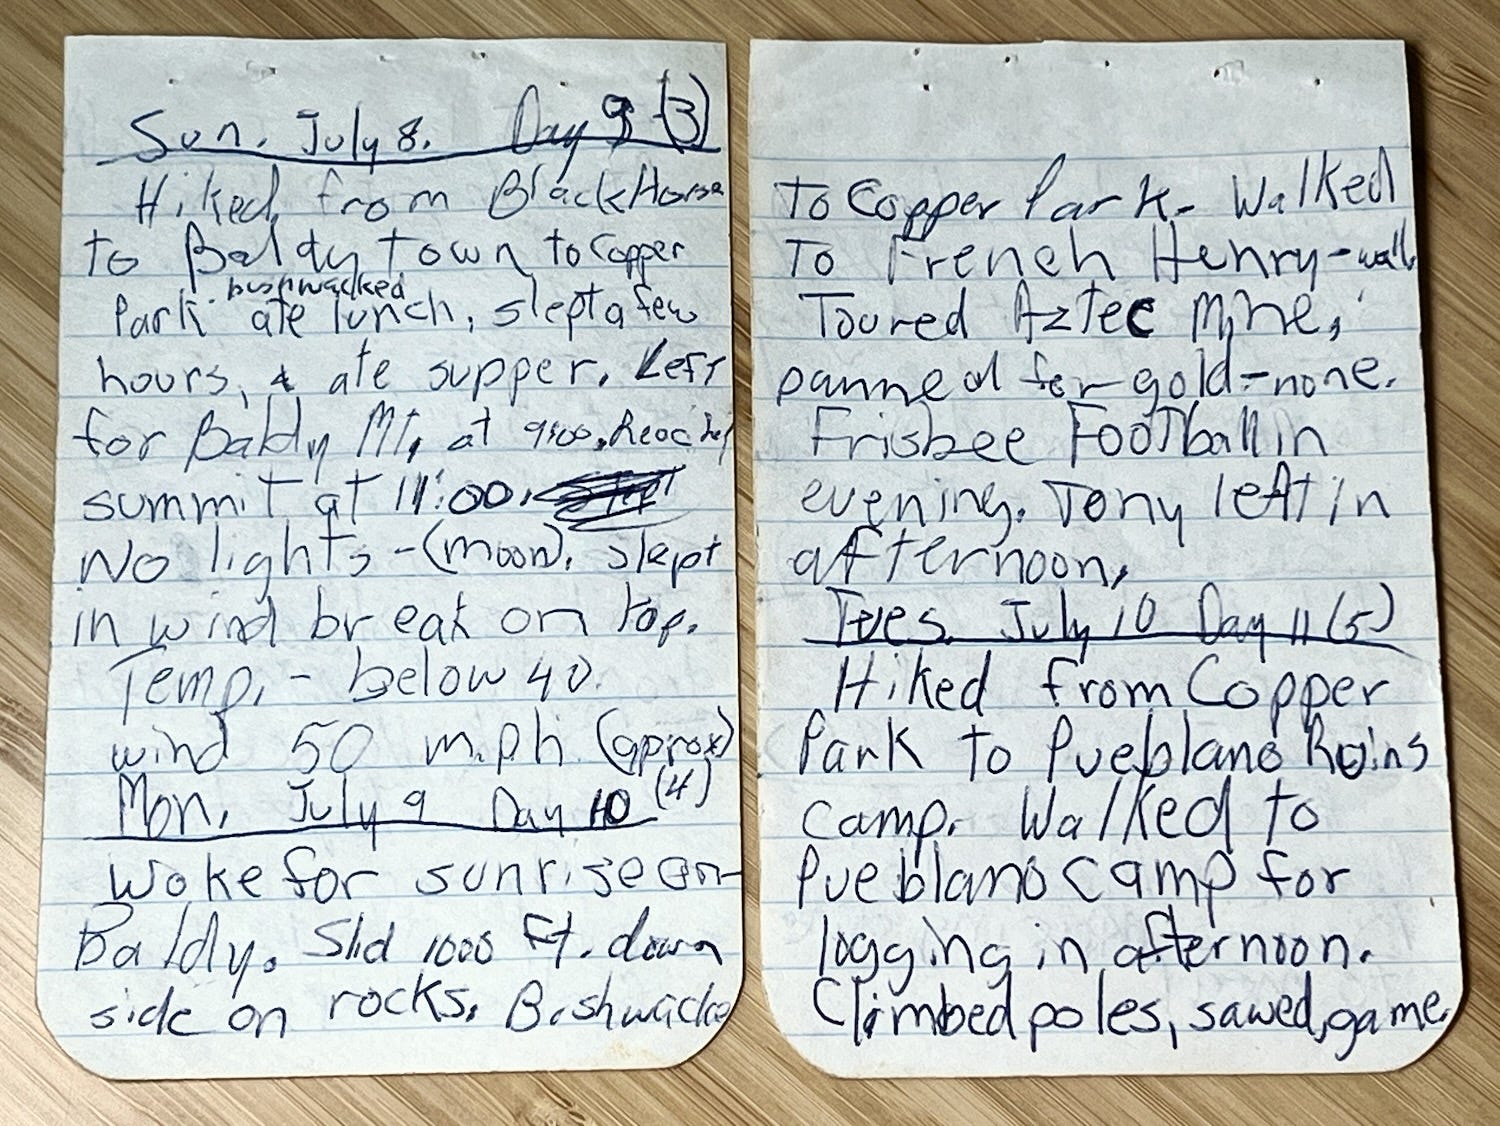 Sun. July 8. Day 9 (3)
Hiked from Black Horse
to Baldy Town to Copper
bushwacked
Park ate lunch, slept a few
hours, & ate supper. Left
for Baldy Mt, at 9:00. Reached
summit at 11:00.
No lights - (moon). slept
in wind break on top.
Temp. - below 40.
wind 50 m.p.h. (aprox)
Mon. July 9 Day 10 (4)
Woke for sunrise on
Baldy. Slid 1000 ft. down
side on rocks. Bushwacked
To Copper Park. Walked
To French Henry -
Toured Aztec Mine,
panned for gold - none.
Frisbee Football in
evening. Tony left in
afternoon,
Tues. July 10 Day 11 (5)
Hiked from Copper
Park to Pueblano Ruins
camp. Walked to
Pueblano camp for
logging in afternoon.
Climbed poles, sawed, game.